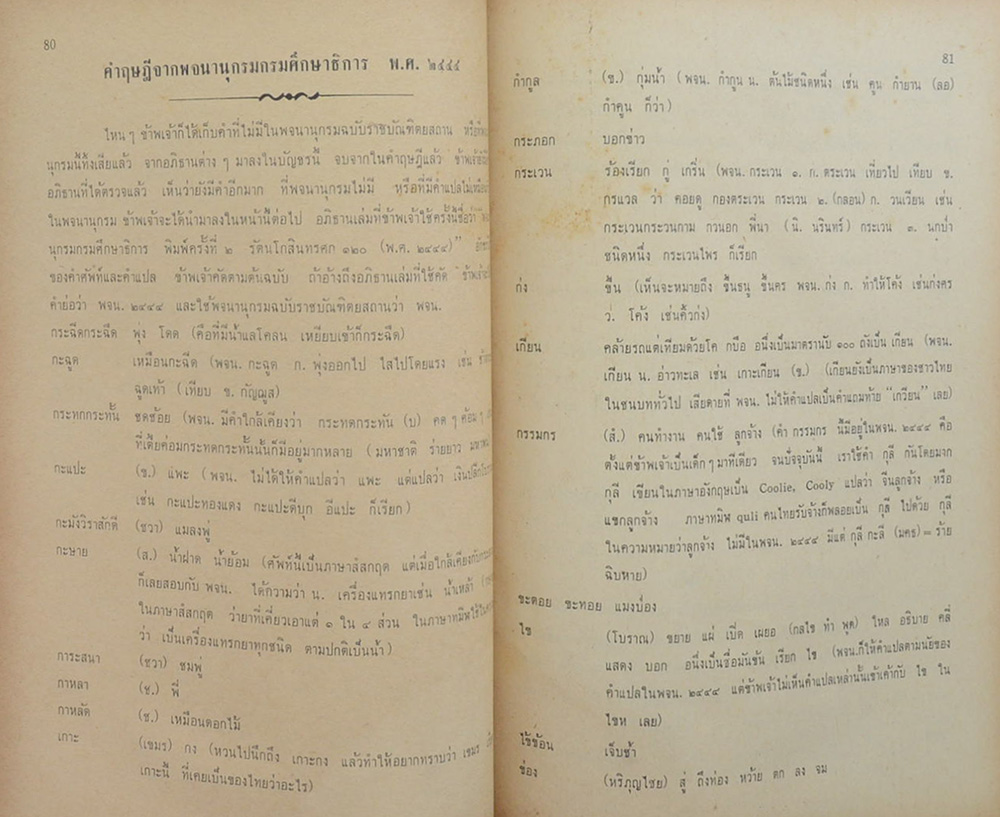 80
คำฤษฎีจากพจนานุกรมกรมศึกษาธิการ พ.ศ. ๒๔๔๔
ไหน ๆ ข้าพเจ้าก็ได้เก็บคำที่ไม่มีในพจนานุกรมฉบับราชบัณฑิตยสถาน หรือที่พจนา
นุกรมนี้ทิ้งเสียแล้ว จากอภิธานต่าง ๆ มาลงในบัญชรนี้ จบจากในคำฤษฎีแล้ว ข้าพเจ้ายัง
อภิธานที่ได้ตรวจแล้ว เห็นว่ายังมีคำอีกมาก ที่พจนานุกรมไม่มี หรือที่มีคำแปลไม่เหมือน
ในพจนานุกรม ข้าพเจ้าจะได้นำมาลงในหน้านี้ต่อไป อภิธานเล่มที่ข้าพเจ้าใช้ครั้งนี้ชื่อว่า
นุกรมกรมศึกษาธิการ พิมพ์ครั้งที่ ๒ รัตนโกสินทรศก ๑๒๐ (พ.ศ. ๒๔๔๔)"
ของคำศัพท์และคำแปล ข้าพเจ้าคัดตามต้นฉบับ ถ้าอ้างถึงอภิธานเล่มที่ใช้คัด ข้าพเจ้าจะ
คำย่อว่า พจน. ๒๔๔๔ และใช้พจนานุกรมฉบับราชบัณฑิตยสถานว่า พจน.
กระฉีดกระฉีด พุ่ง โดด (คือที่มีน้ำแลโคลน เหยียบเข้าก็กระฉีด)
กะฉูด เหมือนกะฉีด (พจน. กะฉูด ก. พุ่งออกไป ใสไปโดยแรง เช่น
ฉูดเท้า (เทียบ ข. กัญฉูส)
กระทกกระทั้น ชดช้อย (พจน. มีคำใกล้เคียงว่า กระทดกระทัน (บ) คด ๆ ค้อม ๆ
ที่เตี้ยค่อมกระทดกระทั้นนั้นก็มีอยู่มากหลาย (มหาชาติ ร่ายยาว
กะแปะ (ช.) แพะ (พจน. ไม่ได้ให้คำแปลว่า แพะ แต่แปลว่า เงินปลีกโบราณ
เช่น กะแปะทองแดง กะแปะดีบุก อีแปะ ก็เรียก)
กะมังวิราสักดี (ชวา) แมลงพู่
กะษาย (ส.) น้ำฝาด น้ำย้อม (ศัพท์นี้เป็นภาษาสํสกฤต แต่เมื่อใกล้เคียงกับ
ก็เลยสอบกับ พจน. ได้ความว่า น. เครื่องแทรกยาเช่น น้ำเหล้า
ในภาษาสํสกฤต ว่ายาที่เคี่ยวเอาแต่ ๑ ใน ๔ ส่วน ในภาษาทมิฬใช้
ว่า เป็นเครื่องแทรกยาทุกชนิด ตามปกติเป็นน้ำ)
การะสนา (ชวา) ชมพู่
กาหลา (ช.) พี่
กาหลัด (ช.) เหมือนดอกไม้
เกาะ (เขมร) กง (หวนไปนึกถึง เกาะกง แล้วทำให้อยากทราบว่า เขมร
เกาะนี้ ที่เคยเป็นของไทยว่าอะไร)
81
กำกูล (ข.) กุ่มน้ำ (พจน. กำกูน น. ต้นไม้ชนิดหนึ่ง เช่น คูน กำยาน (ลอ)
กำคูน ก็ว่า)
กระภอก บอกข่าว
กระเวน ร้องเรียก กู่ เกริ่น (พจน. กระเวน ๑. ก. ตระเวน เที่ยวไป เทียบ ข.
กฺรแวล ว่า คอยดู กองตระเวน กระเวน ๒. (กลอน) ก. วนเวียน เช่น
กระเวนกระวนกาม กวนอก พี่นา (นิ. นรินทร์) กระเวน ๓. นกป่า
ชนิดหนึ่ง กระเวนไพร ก็เรียก)
ก่ง ขึ้น (เห็นจะหมายถึง ขึ้นธนู ขึ้นคร พจน. ก่ง ก. ทำให้โค้ง เช่นก่งศร
ว. โค้ง เช่นคิ้วก่ง)
เกียน คล้ายรถแต่เทียมด้วยโค กบือ อนึ่งเป็นมาตรานับ ๑๐๐ ถังเป็น เกียน (พจน.
เกียน น. อ่าวทะเล เช่น เกาะเกียน (ข.) (เกียนยังเป็นภาษาของชาวไทย
ในชนบททั่วไป เสียดายที่ พจน. ไม่ให้คำแปลเป็นคำแถมท้าย "เกวียน" เลย)
กรรมกร (สํ.) คนทำงาน คนใช้ ลูกจ้าง (คำ กรรมกร นี้มีอยู่ในพจน. ๒๔๔๔ คือ
ตั้งแต่ข้าพเจ้าเป็นเด็ก ๆ มาทีเดียว จนปัจจุบันนี้ เราใช้คำ กุลี กันโดยมาก
กุลี เขียนในภาษาอังกฤษเป็น Coolie, Cooly แปลว่า จีนลูกจ้าง หรือ
แขกลูกจ้าง ภาษาทมิฬ quli คนไทยรับจ้างก็พลอยเป็น กุลี ไปด้วย กุลี
ในความหมายว่าลูกจ้าง ไม่มีในพจน. ๒๔๔๔ มีแต่ กุลี กะลี (มคธ) = ร้าย
ฉิบหาย)
ขะดอย ขะทอย แมงป่อง
ไข (โบราณ) ขยาย แผ่ เปิด เผยอ (กลไข ทำ พูด) ไหล อธิบาย คลี่
แสดง บอก อนึ่งเป็นชื่อมันข้น เรียก ไข (พจน.ก็ให้คำแปลตามนัยของ
คำแปลในพจน. ๒๔๔๔ แต่ข้าพเจ้าไม่เห็นคำแปลเหล่านั้นเข้าเค้ากับ ไข ใน
ไขห เลย)
ไข้ข้อน เจ็บช้ำ
ข่อง (หริภุญไชย) สู่ ถึงท่อง หว้าย ตก ลง จม